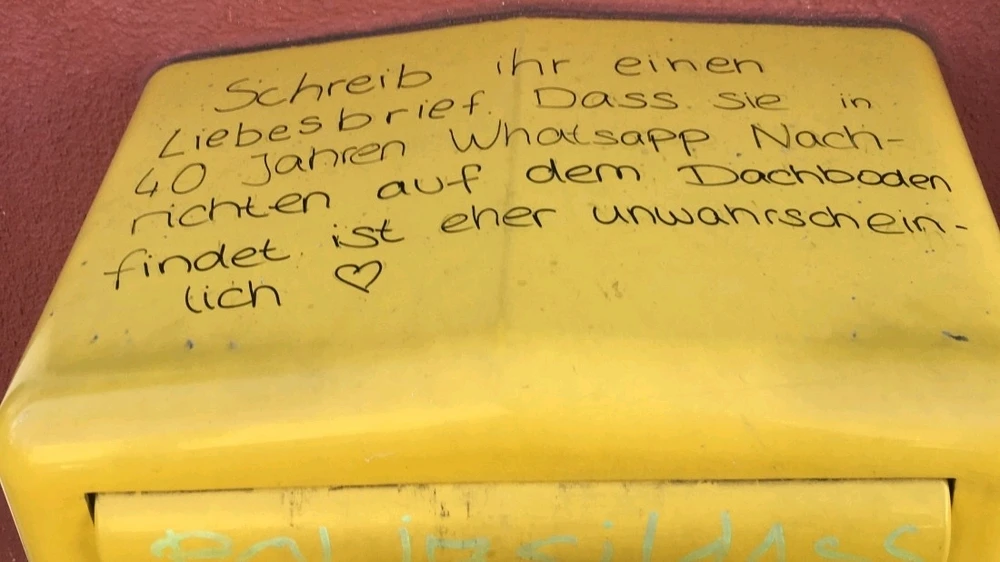 Schreib ihr einen
Liebesbrief. Dass sie in
40 Jahren Whatsapp Nach-
richten auf dem Dachboden
findet ist eher unwahrschein-
lich ♡